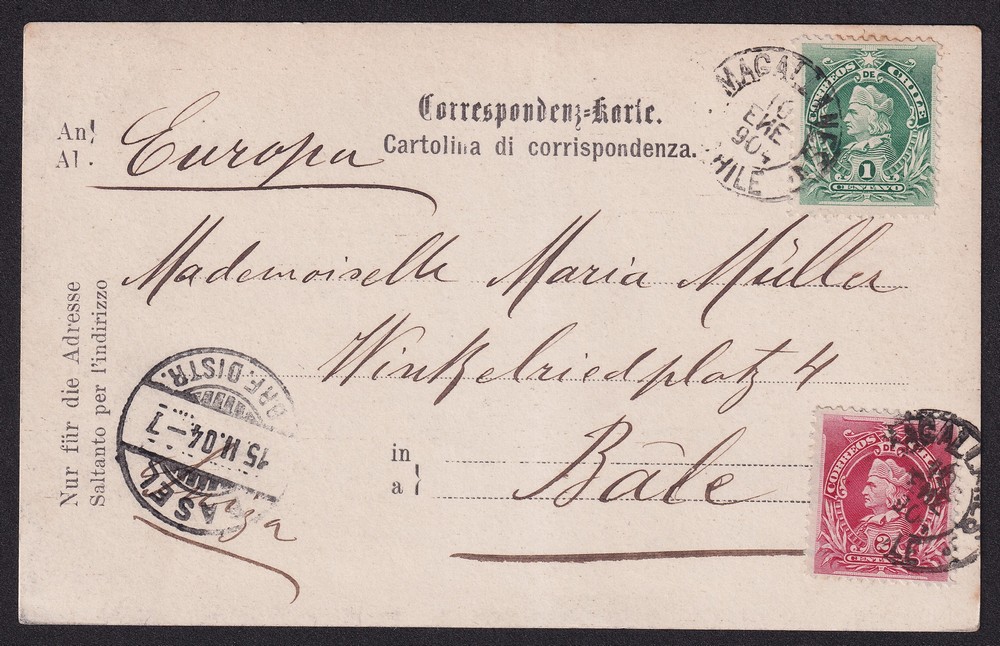 Correspondenz-Karte.
Cartolina di corrispondenza.
An
Al
Europa
Mademoiselle Maria Müller
Winkelriedplatz 4
in
a
Bâle
Suiza
Nur für die Adresse
Saltanto per l'indirizzo
MAGALLANES
ENE
904
CHILE
CORREOS DE CHILE
1
CENTAVO
BASEL
BRF. DISTR.
15.II.04-7
CORREOS DE CHILE
2
CENTAVOS
MAGALLANES
ENE